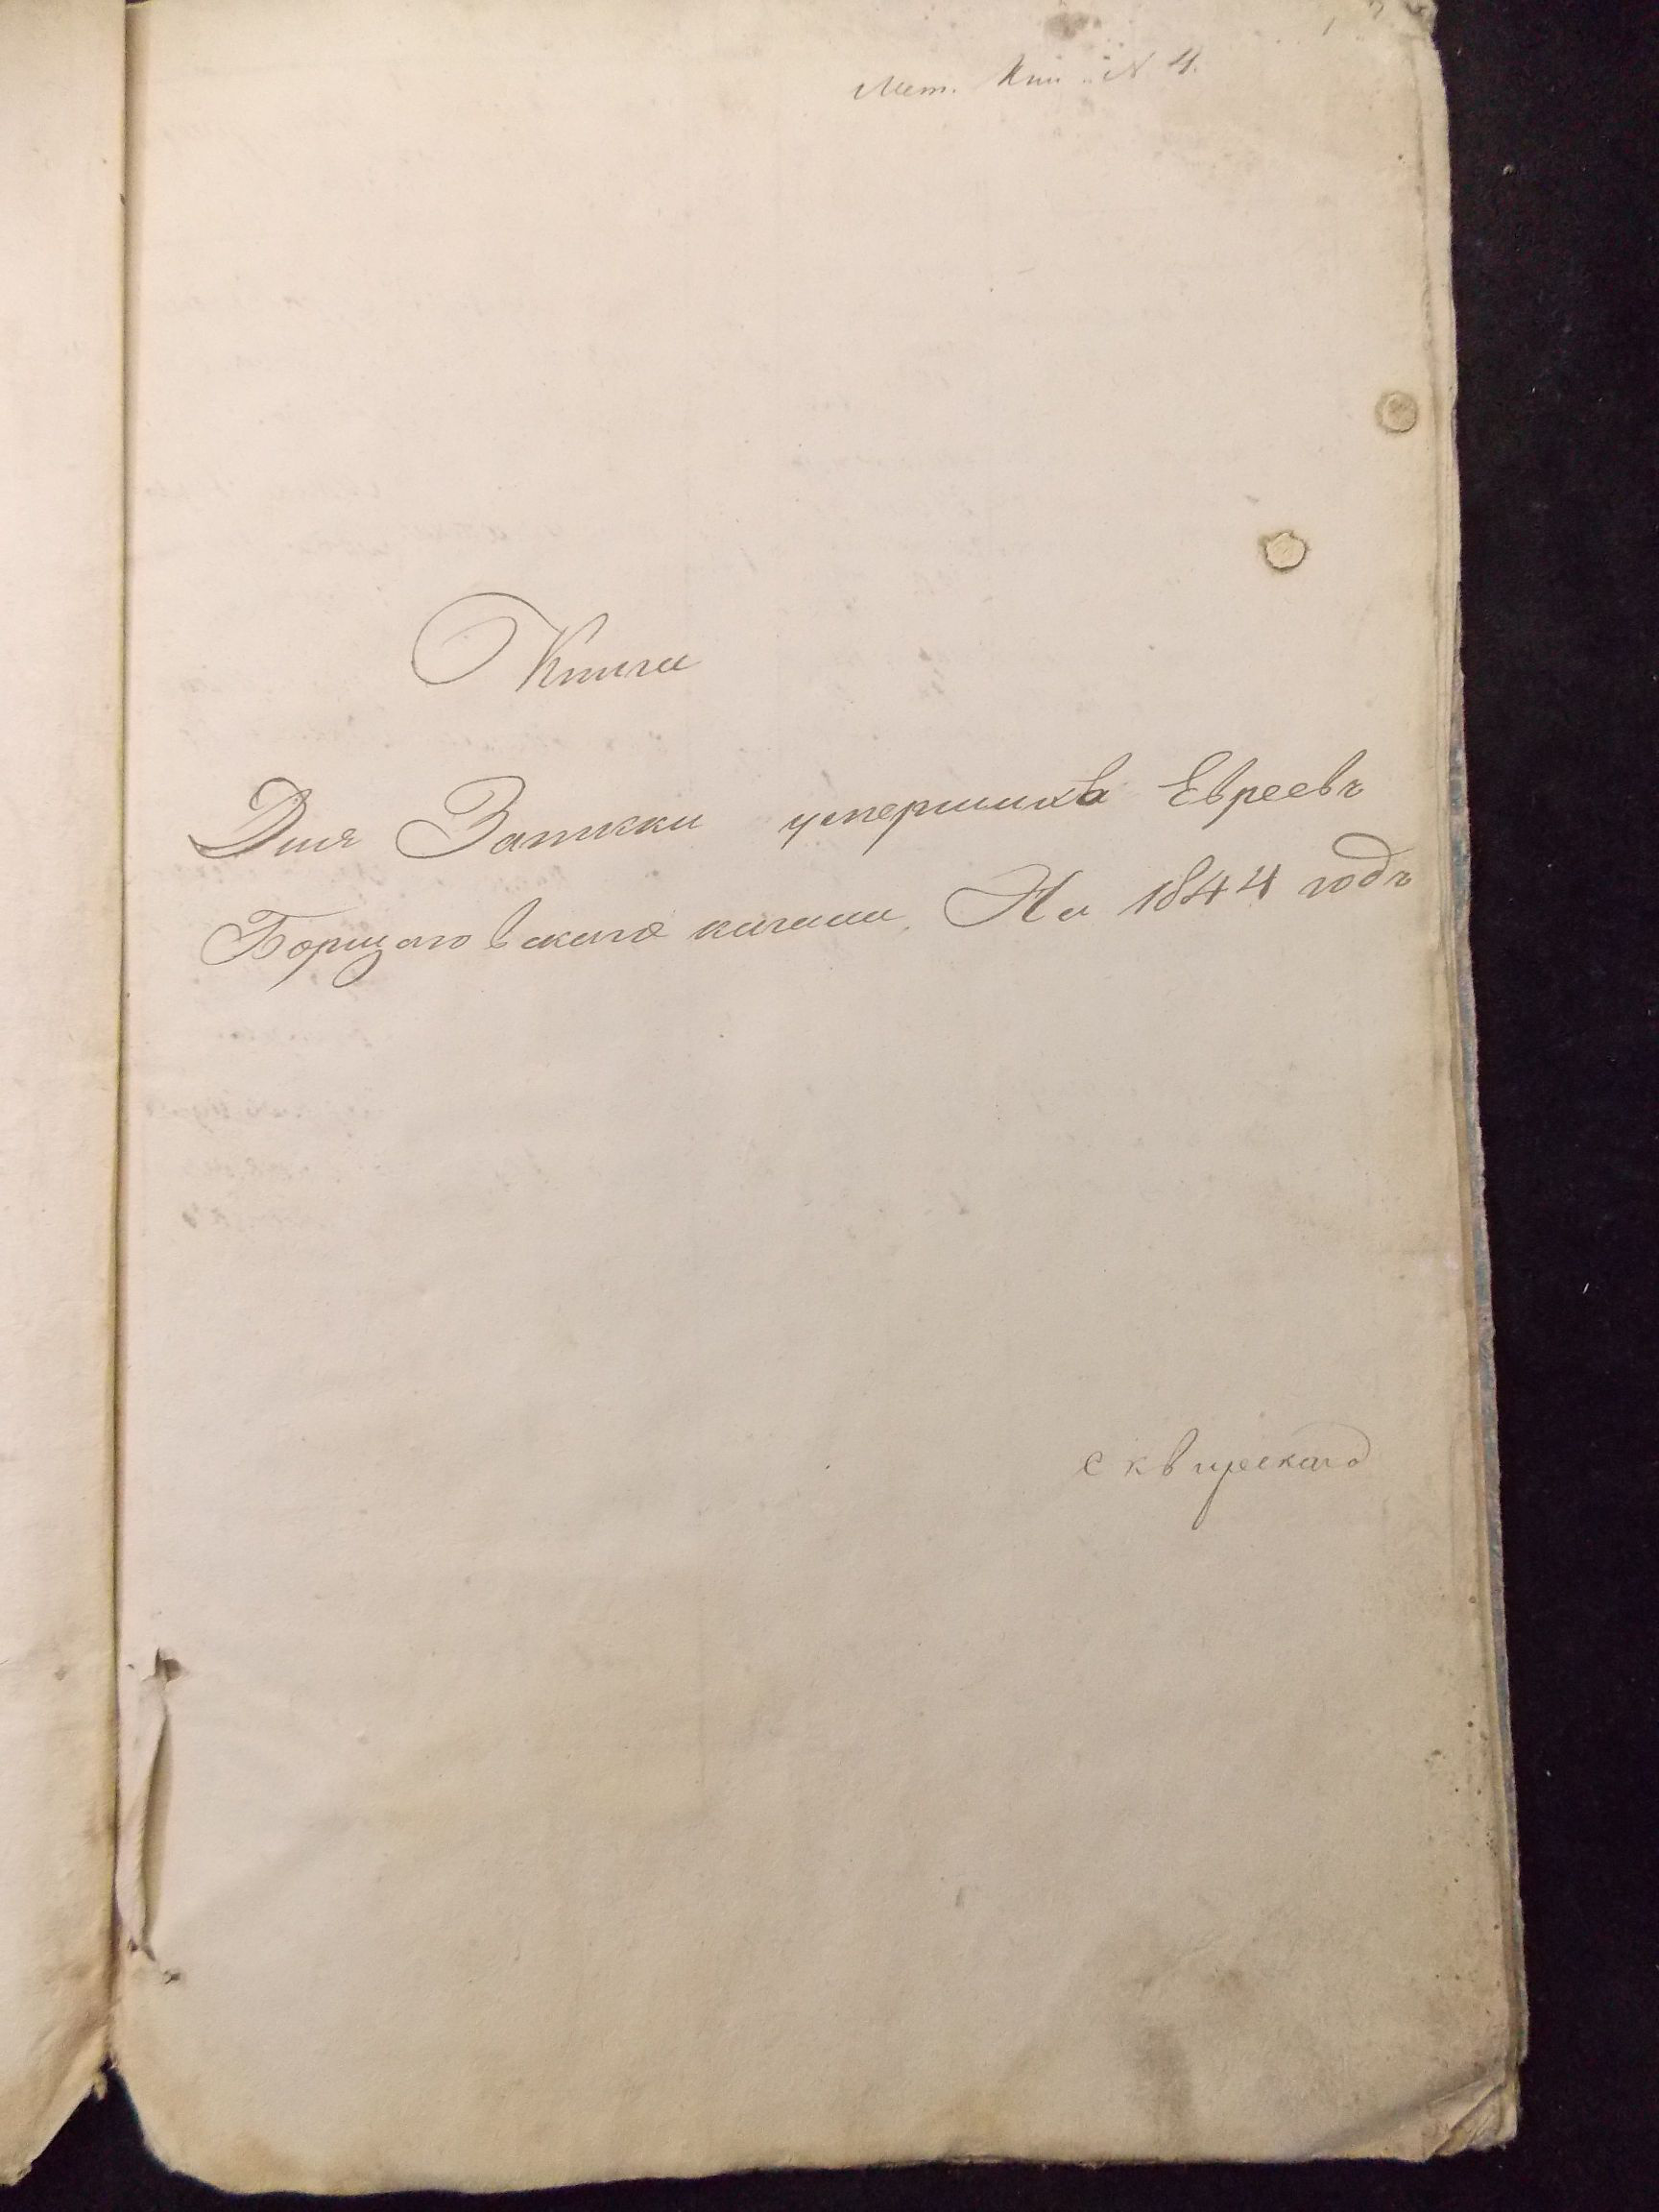 Мет. Кни. N 4.
Книга
Для Записки умершихъ Евреевъ
Борщаговского кагала На 1844 годъ
Сквирского